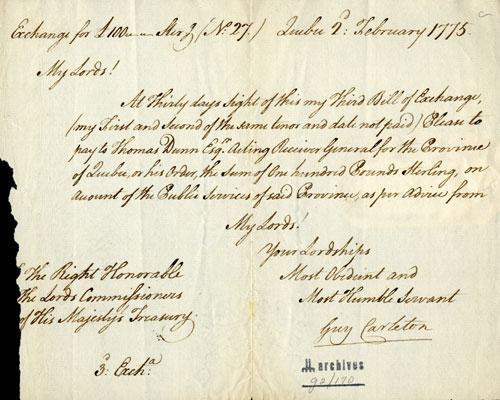 Exchange for £100 Sterg (No. 27.) Quebec 2d: February 1775.
My Lords!
At Thirty days Sight of this my Third Bill of Exchange,
(my First and Second of the same tenor and date not paid) Please to
pay to Thomas Dunn Esqr. Acting Receiver General for the Province
of Quebec, or his Order, the Sum of One hundred Pounds Sterling, on
account of the Public Services of said Province, as per Advice from
My Lords!
Your Lordships
Most Obedient and
Most Humble Servant
Guy Carleton
The Right Honorable
the Lords Commissioners
of His Majesty's Treasury.
3d: Excha:
archives
92/170